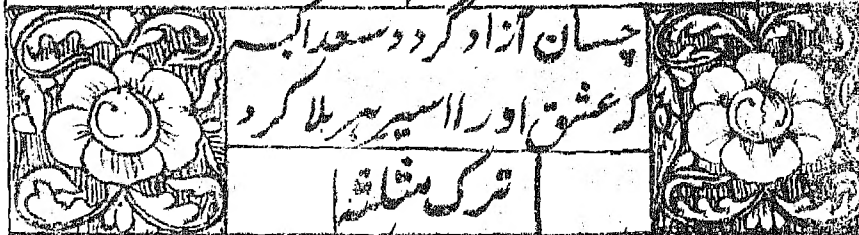 چسان آزاد گردد سعد اکبر
که عشق او را اسیر هر بلا کرد
ترک مثلثه